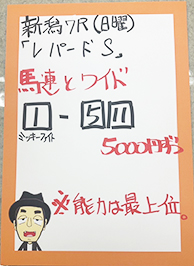 新潟7R(日曜)
「レパードS」
馬連とワイド
1-5 11
ミッキーファイト
5000円分
※能力は最上位。